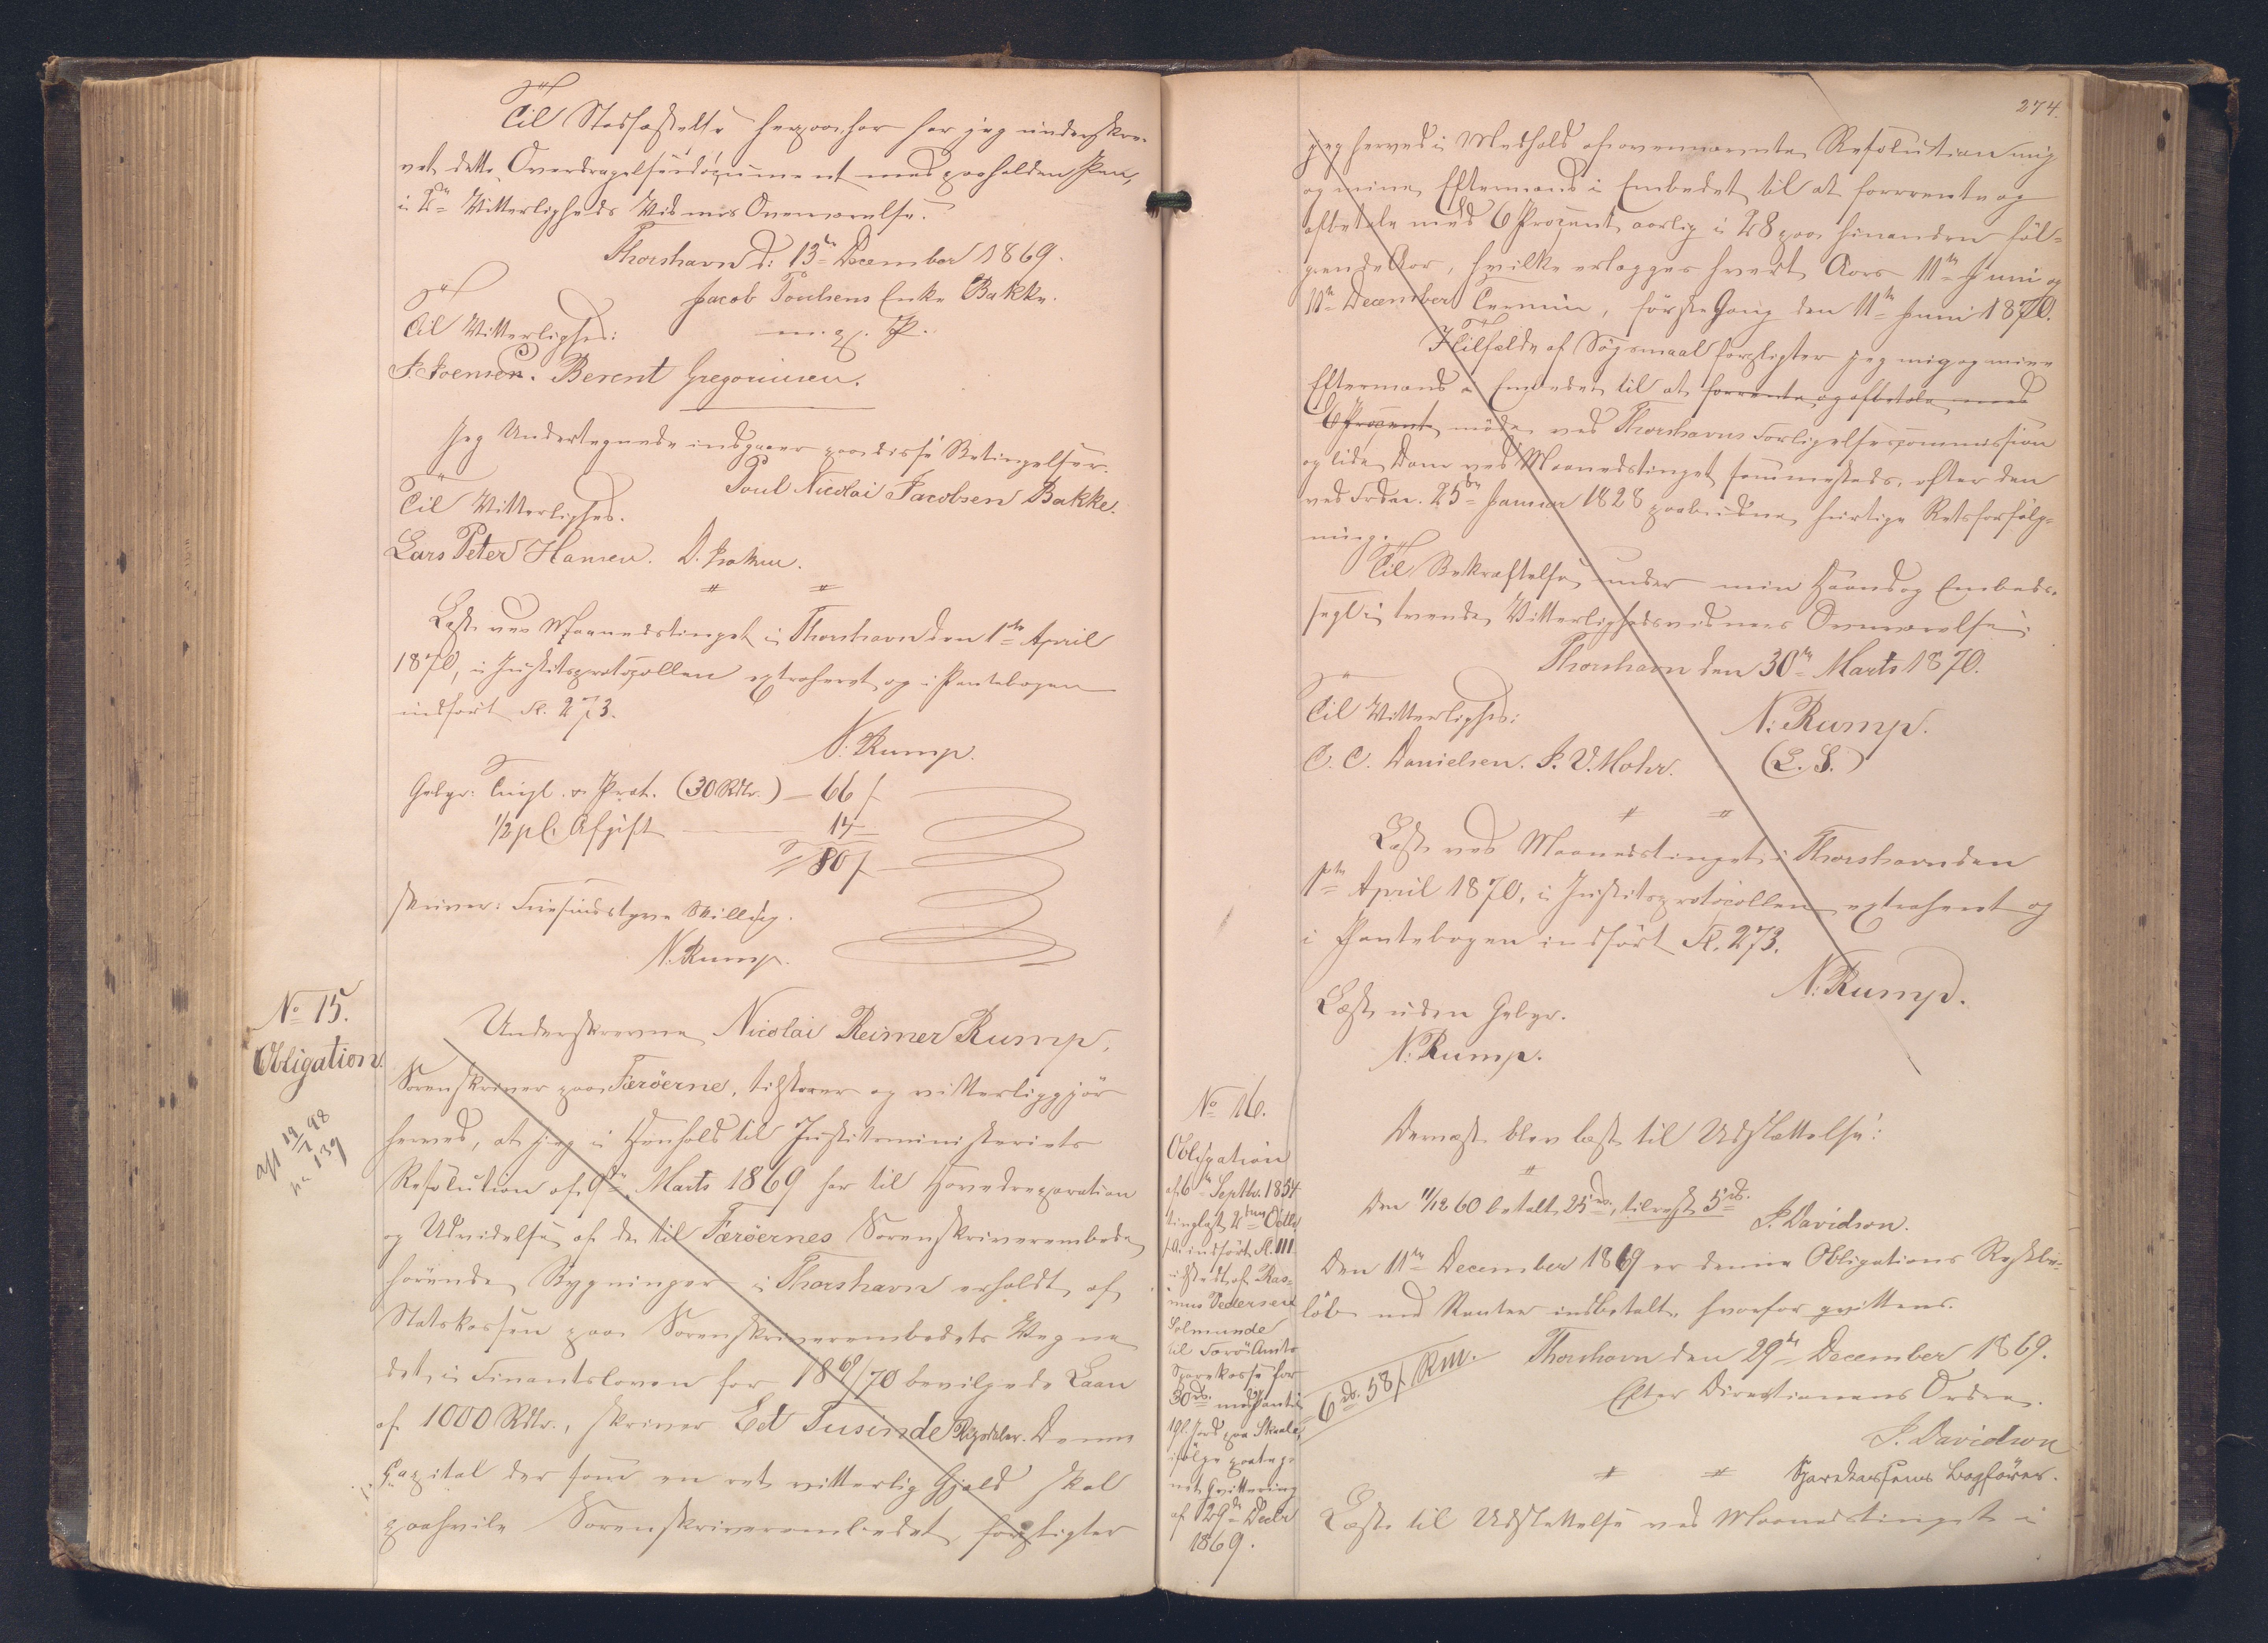 Til Stadfæstelse herpaa har jeg underskre-
vet dette Overdragelsesdocument med paaholden Pen,
i 2de Vitterligheds Vidners Overværelse.
Thorshavn d: 13de December 1869.
Jacob Poulsens Enke Bakke.
m. p. P.
Til Vitterlighed:
J. Joensen. Berent Gregoriussen.
Jeg Undertegnede indgaaer paa disse Betingelser.
Poul Nicolai Jacobsen Bakke.
Til Vitterlighed.
Lars Peter Hansen. D. Isaksen.
Læst ved Maanedstinget i Thorshavn den 1ste April
1870, i Justitsprotocollen extraheret og i Pantebogen
indført Fol. 273.
N. Rump.
Gebyr: Tingl. & Prot. (30 Rdlr.) — 66 ß
1/2 pCt. Afgift — 14
80 ß
skriver: Firsindstyve Skilling.
N. Rump.
No 15.
Obligation.
afl 19/7 98
pa 139
Underskrevne Nicolai Reimer Rump,
Sorenskriver paa Færöerne, tilstaaer og vitterliggjör
herved, at jeg i Henhold til Justitsministeriets
Resolution af 9de Marts 1869 har til Hovedreparation
og Udvidelse af de til Færöernes Sorenskriverembede
hørende Bygninger i Thorshavn erholdt af
Statskassen paa Sorenskriverembedets Vegne
det i Finantsloven for 1869/70 bevilgede Laan
af 1000 Rdlr., skriver Eet Tusinde Rigsdaler. Denne
Capital der som en ret vitterlig Gjæld skal
paahvile Sorenskriverembedet, forpligter
274.
jeg herved i Medhold af ovennævnte Resolution mig
og mine Eftermænd i Embedet til at forrente og
afbetale med 6 Procent aarlig i 28 paa hinanden föl-
gende Aar, hvilke erlægges hvert Aars 11te Juni og
11te December Termin, förste Gang den 11te Juni 1870.
I Tilfælde af Søgsmaal forpligter jeg mig og mine
Eftermænd i Embedet til at forrente og afbetale med
6 Procent möde ved Thorshavns Forligelsescommission
og lide Dom ved Maanedstinget sammesteds, efter den
ved Frdn. 25de Januar 1828 paabudne hurtige Retsforfölg-
ning.
Til Bekræftelse under min Haand og Embeds-
segl i tvende Vitterlighedsvidners Overværelse.
Thorshavn den 30te Marts 1870.
Til Vitterlighed:
N. Rump.
C. C. Danielsen. J. V. Mohr.
(L. S.)
Læst ved Maanedstinget i Thorshavn den
1ste April 1870, i Justitsprotocollen extraheret og
i Pantebogen indført Fol. 273.
N. Rump.
Læst uden Gebyr.
N. Rump.
Dernæst blev læst til Udslettelse:
No 16.
Obligation
af 6te Septbr. 1854
tinglæst 2den Octbr
s. A. indført Fol. 111
udstedt af Ras-
mus Pedersen
Solmunde
til Færö Amts
Sparekasse for
30 rd. med Pant i
1 Gl. Jord paa Skaale,
ifölge paateg-
net Qvittering
af 29de Decbr
1869.
Den 11/12 60 betalt 25 rd., tilrest 5 rd.
J. Davidson.
Den 11te December 1869 er denne Obligations Restbe-
löb med Renter indbetalt, hvorfor qvitteres.
6 rd. 58 ß RM.
Thorshavn den 29de December 1869.
Efter Directionens Ordre.
J. Davidson
Sparekassens Bogförer.
Læst til Udslettelse ved Maanedstinget i